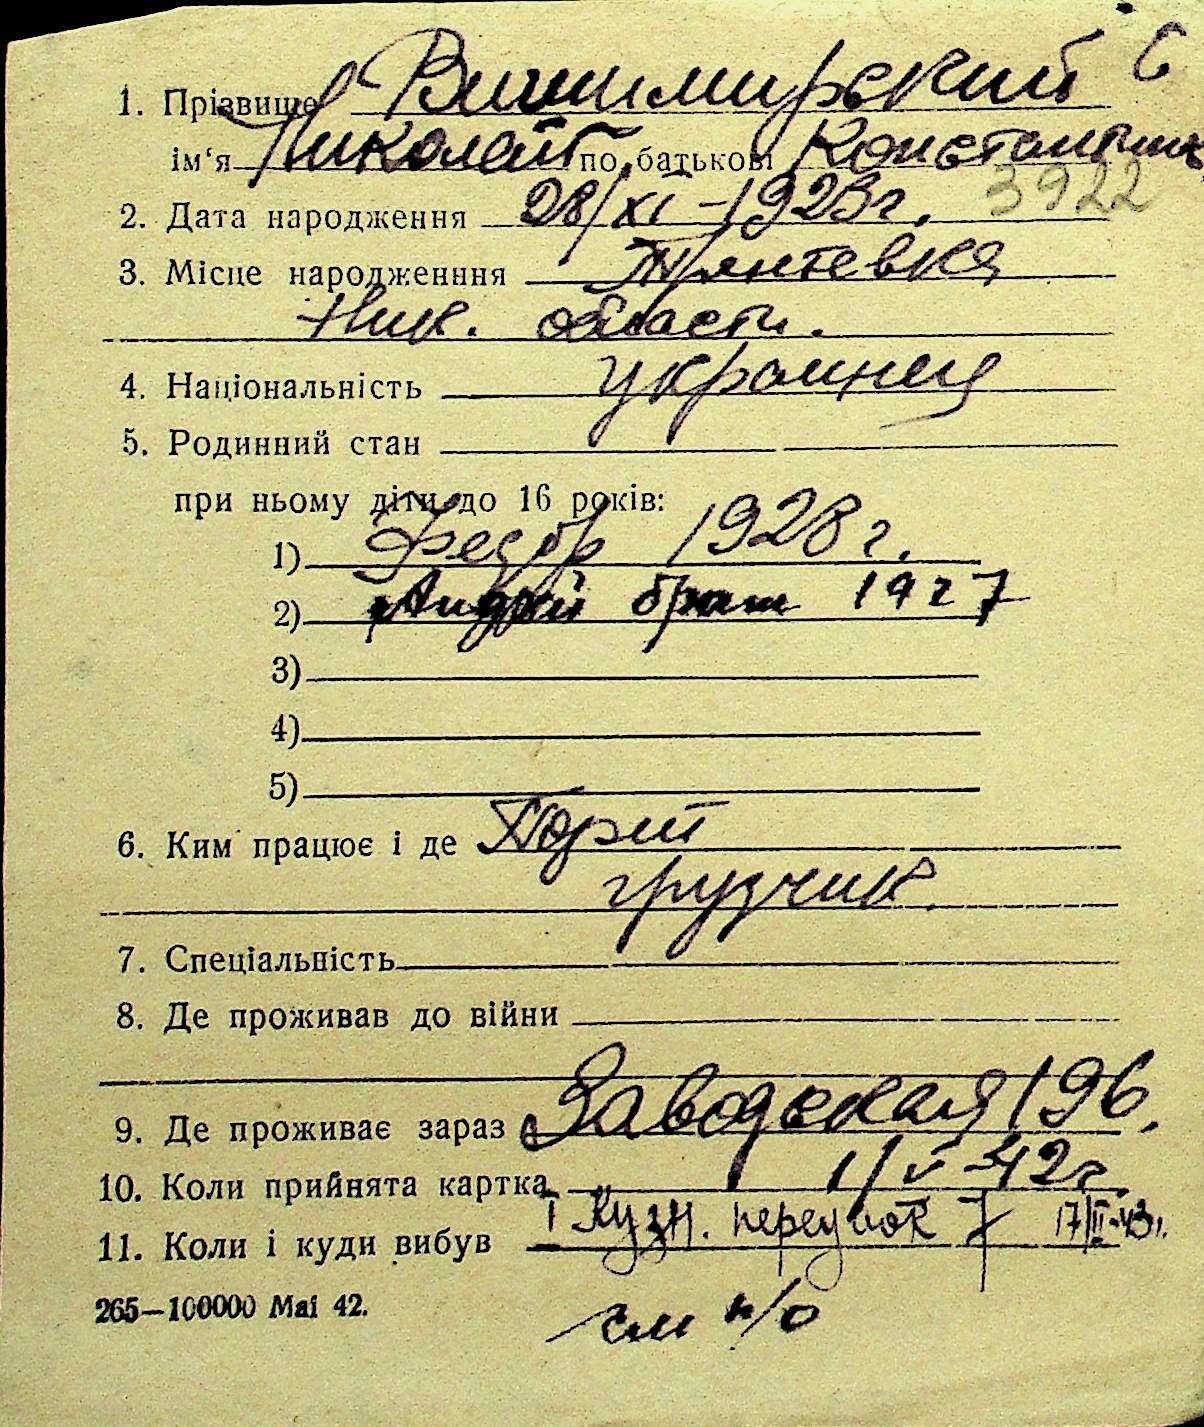 6
1. Прізвище Вишимирский
ім'я Николай по батькові Константин
2. Дата народження 28/XI-1923г. 3922
3. Місце народженння
Ник. области.
4. Національність украинец
5. Родинний стан
при ньому діти до 16 років:
1) Федор 1928 г.
2) Андрей брат 1927
3)
4)
5)
6. Ким працює і де Порт
грузчик.
7. Спеціальність
8. Де проживав до війни
9. Де проживає зараз Заводская 196.
10. Коли прийнята картка 1/V-42г.
11. Коли і куди вибув I Кузн. переулок 7 17/II-43г.
265—100000 Mai 42.
см н/о